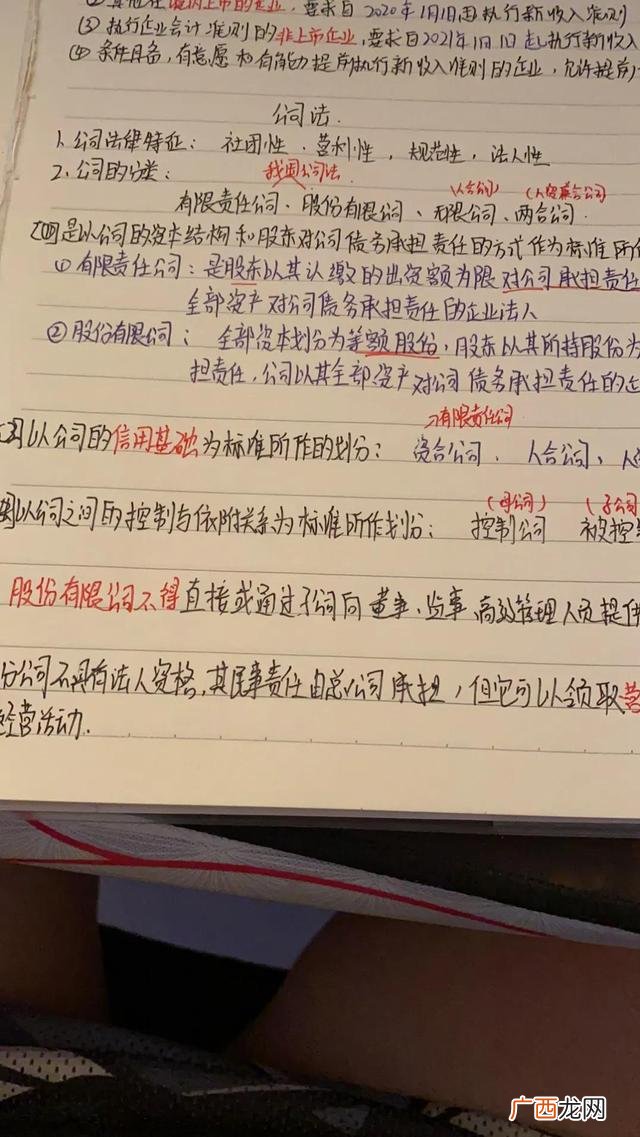 要求自2020年1月1日起执行新收入准则
③ 执行企业会计准则的非上市企业，要求自2021年1月1日起执行新收入
④ 条件具备，有意愿和有能力提前执行新收入准则的企业，允许提前
公司法.
1. 公司法律特征： 社团性 . 营利性 ， 规范性 ， 法人性
2. 公司的分类： 我国公司法 (人合公司) (人资兼合公司)
有限责任公司、股份有限公司、无限公司、两合公司.
是以公司的资本结构和股东对公司债务承担责任的方式作为标准所作
① 有限责任公司：是股东以其认缴的出资额为限对公司承担责任
全部资产对公司债务承担责任的企业法人
② 股份有限公司： 全部资本划分为等额股份，股东以其所持股份为
担责任，公司以其全部资产对公司债务承担责任的企
有限责任公司
以公司的信用基础为标准所作的划分： 资合公司 、 人合公司 、 人
(母公司) (子公司
以公司之间的控制与依附关系为标准所作划分： 控制公司 被控制
股份有限公司不得直接或通过子公司向董事、监事、高级管理人员提供
分公司不具有法人资格，其民事责任由总公司承担，但它可以领取营
经营活动.
广西龙网